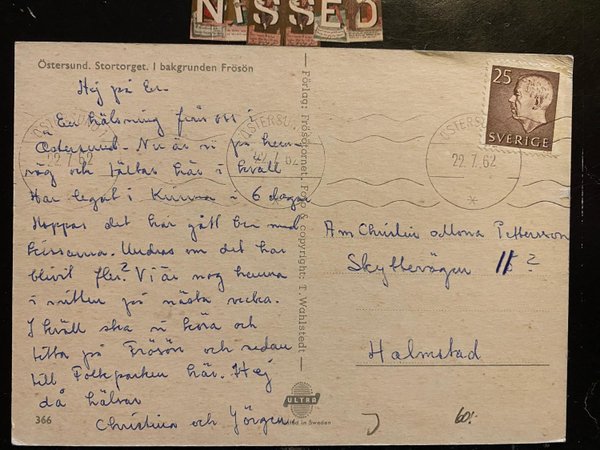 NiSSED
Östersund. Stortorget. I bakgrunden Frösön
Hej på Er.
En hälsning från oss i
Östersund. Nu är vi på hem
väg och tältar här i kväll
Har legat i Kiruna i 6 dagar
Hoppas det har gått bra med
kissarna. Undras om det har
blivit fler? Vi är nog hemma
i mitten på nästa vecka.
I kväll ska vi köra och
titta på Frösön och sedan
till Folkparken här. Hej
då hälsar
Christina och Jörgen
366
ÖSTERSUND 1
22.7.62
ÖSTERSUND
22.7.62
ÖSTERSUND
22.7.62
Förlag: Frösötornet Foto & copyright: T. Wahlstedt
ULTRA
in Sweden
25
SVERIGE
Christin o Mona Pettersson
Skyttevägen ?
Halmstad
60: